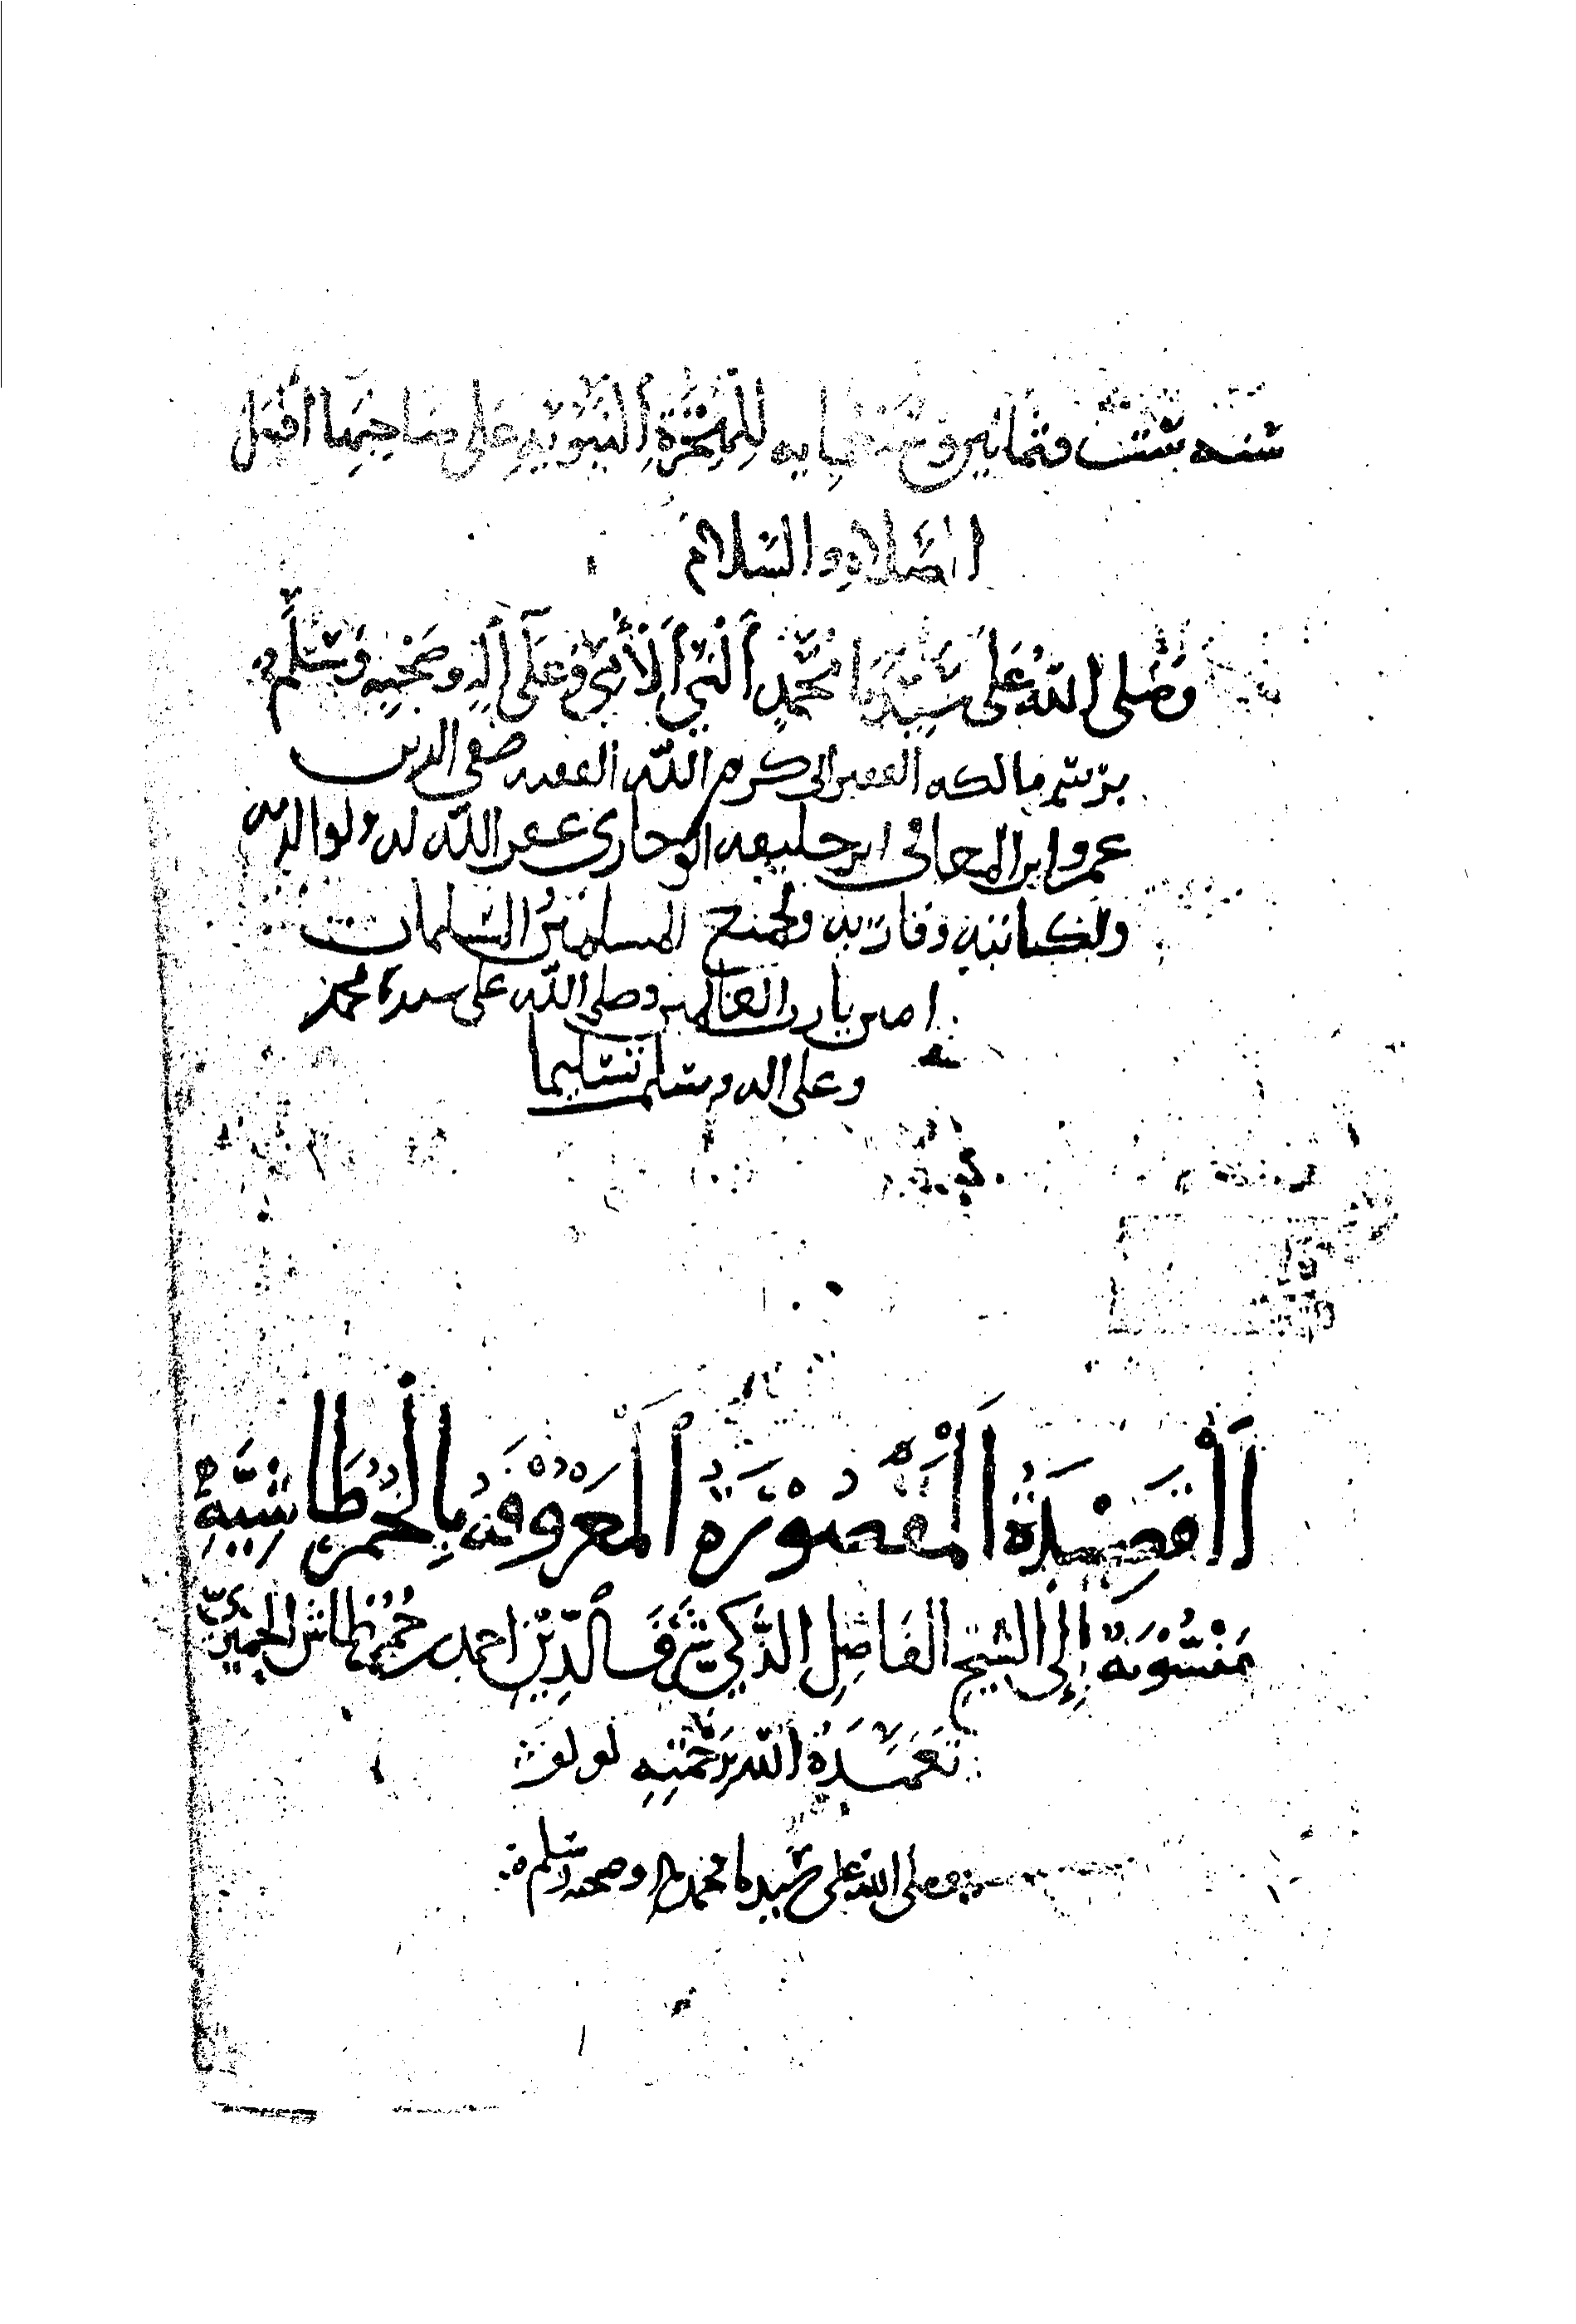 سنه ست وثمانين وخمسمايه للهجرة النبوية على صاحبها افضل
الصلاه والسلام
وصلى الله على سيدنا محمد النبي الأمي وعلى آله وصحبه وسلم
برسم مالكه الفقير الى كرم الله الفقيه صفي الدين
عمرو ابن المعافى ابن خليفه غفر الله له ولوالديه
ولكاتبه وقاريه ولجميع المسلمين المسلمات
امين يا رب العالمين وصلى الله على سيدنا محمد
وعلى اله وسلم تسليما
اَلْقَصِيْدَةُ اَلْمَقْصُوْرَةُ اَلْمَعْرُوْفَهُ بِالْخُمُرْطَاشِيَّةِ
مَنْسُوْبَةٌ إِلى الشيخ الفَاضِلِ الذَّكي شَرَفَ الدِّيْنِ احمد بن خُمُرْطاش الحِمْيَرِيّ
تَغَمَّدَهُ الله بِرَحْمَتِهِ
وصلى الله على سيدنا محمد واله وصحبه وسلم